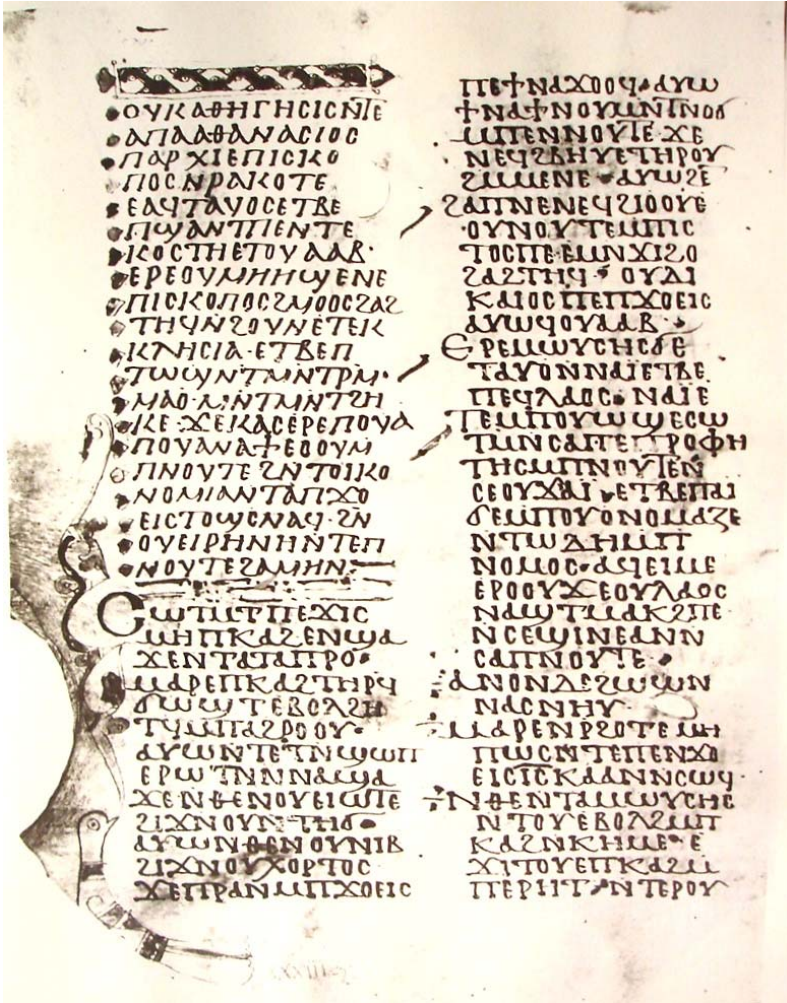 ⲟⲩⲕⲁⲑⲏⲅⲏⲥⲓⲥⲛ̄ⲧⲉ
ⲁⲡⲁⲁⲑⲁⲛⲁⲥⲓⲟⲥ
ⲡⲁⲣⲭⲓⲉⲡⲓⲥⲕⲟ
ⲡⲟⲥⲛ̄ⲣⲁⲕⲟⲧⲉ
ⲉⲁϥⲧⲁⲩⲟⲥⲉⲧⲃⲉ
ⲡϣⲁⲛⲧⲡⲉⲛⲧⲉ
ⲕⲟⲥⲧⲏⲉⲧⲟⲩⲁⲁⲃ·
ⲉⲣⲉⲟⲩⲙⲏⲏϣⲉⲛⲉ
ⲡⲓⲥⲕⲟⲡⲟⲥϩⲙⲟⲟⲥϩⲁϩ
ⲧⲏϥⲛϩⲟⲩⲛⲉⲧⲉⲕ
ⲕⲗⲏⲥⲓⲁ·ⲉⲧⲃⲉⲡ
ⲧⲱϣⲛⲧⲙⲛⲧⲣⲙ·
ⲙⲁⲟ·ⲙⲛⲧⲙⲛⲧϩⲏ
ⲕⲉ·ϫⲉⲕⲁⲥⲉⲣⲉⲡⲟⲩⲁ
ⲡⲟⲩⲁⲛⲁϯⲉⲟⲟⲩⲙ
ⲡⲛⲟⲩⲧⲉϩⲛⲧⲟⲓⲕⲟ
ⲛⲟⲙⲓⲁⲛⲧⲁⲡϫⲟ
ⲉⲓⲥⲧⲟϣⲥⲛⲁϥ·ϩⲛ
ⲟⲩⲉⲓⲣⲏⲛⲏⲛⲧⲉⲡ
ⲛⲟⲩⲧⲉϩⲁⲙⲏⲛ:
ⲥⲱⲧⲙ̄ⲧⲡⲉϫⲓⲥ
ⲙⲏⲡⲕⲁϩⲉⲛϣⲁ
ϫⲉⲛⲧⲁⲧⲁⲡⲣⲟ·
ⲙⲁⲣⲉⲡⲕⲁϩⲧⲏⲣϥ
ϭⲱϣⲧⲉⲃⲟⲗϩⲏ
ⲧϥⲙⲡⲁϩⲣⲟⲟⲩ·
ⲁⲩⲱⲛⲧⲉⲧⲛϣⲱⲡ
ⲉⲣⲱⲧⲛ̄ⲛⲛⲁϣⲁ
ϫⲉⲛⲑⲉⲛⲟⲩⲉⲓⲱⲧⲉ
ϩⲓϫⲛⲟⲩⲛⲧⲏϭ·
ⲁⲩⲱⲛⲑⲉⲛⲟⲩⲛⲓⲃ
ϩⲓϫⲛⲟⲩⲭⲟⲣⲧⲟⲥ
ϫⲉⲡⲣⲁⲛⲙⲡϫⲟⲉⲓⲥ
ⲡⲉϯⲛⲁϫⲟⲟϥ·ⲁⲩⲱ
ϯⲛⲁϯⲛⲟⲩⲙⲛ̄ⲧⲛⲟϭ
ⲙⲡⲉⲛⲛⲟⲩⲧⲉ·ϫⲉ
ⲛⲉϥϩⲃⲏⲩⲉⲧⲏⲣⲟⲩ
ϩⲙⲙⲉⲛⲉ·ⲁⲩⲱϩⲉ
ϩⲁⲡⲛⲉⲛⲉϥϩⲓⲟⲟⲩⲉ
·ⲟⲩⲛⲟⲩⲧⲉⲙⲡⲓⲥ
ⲧⲟⲥⲡⲉ·ⲉⲙⲛϫⲓϩⲟ
ϩⲁϩⲧⲏϥ·ⲟⲩⲇⲓ
ⲕⲁⲓⲟⲥⲡⲉⲡϫⲟⲉⲓⲥ
ⲁⲩⲱϥⲟⲩⲁⲁⲃ·
ⲉⲣⲉⲙⲱⲩⲥⲏⲥϭⲉ
ⲧⲁⲩⲟⲛⲛⲁⲓ̈ⲉⲧⲃⲉ
ⲡⲉϥⲗⲁⲟⲥ·ⲛⲁⲓ̈ⲉ
ⲧⲉⲙⲡⲟⲩⲱϣⲉⲥⲱ
ⲧⲙⲛⲥⲁⲡⲉⲡⲣⲟⲫⲏ
ⲧⲏⲥⲙⲡⲛⲟⲩⲧⲉⲛ̄
ⲥⲉⲟⲩϫⲁⲓ̈·ⲉⲧⲃⲉⲡⲁⲓ
ϭⲉⲙⲡⲟⲩⲟⲛⲟⲙⲁⲍⲉ
ⲛⲧⲱⲇⲏⲙⲡ
ⲛⲟⲙⲟⲥ·ⲁϥⲉⲓⲙⲉ
ⲉⲣⲟⲟⲩϫⲉⲟⲩⲗⲁⲟⲥ
ⲛⲁϣⲧⲙⲁⲕϩⲡⲉ·
ⲛⲥⲉϣⲓⲛⲉⲁⲛⲛ
ⲥⲁⲡⲛⲟⲩⲧⲉ·
ⲁⲛⲟⲛⲇⲉϩⲱⲱⲛ
ⲛⲁⲥⲛⲏⲩ·
ⲙⲁⲣⲉⲛⲣϩⲟⲧⲉⲙⲏ
ⲡⲱⲥⲛ̄ⲧⲉⲡⲉⲛϫⲟ
ⲉⲓⲥⲓ̅ⲥ̅ⲕⲁⲁⲛⲛⲥⲱϥ·
ⲛⲑⲉⲛⲧⲁⲙⲱⲩⲥⲏⲥ
ⲛⲧⲟⲩⲉⲃⲟⲗϩⲙⲡ
ⲕⲁϩⲛⲕⲏⲙⲉ·ⲉ
ϫⲓⲧⲟⲩⲉⲡⲕⲁϩⲙ
ⲡⲉⲣⲏⲧ·ⲛⲧⲉⲣⲟⲩ